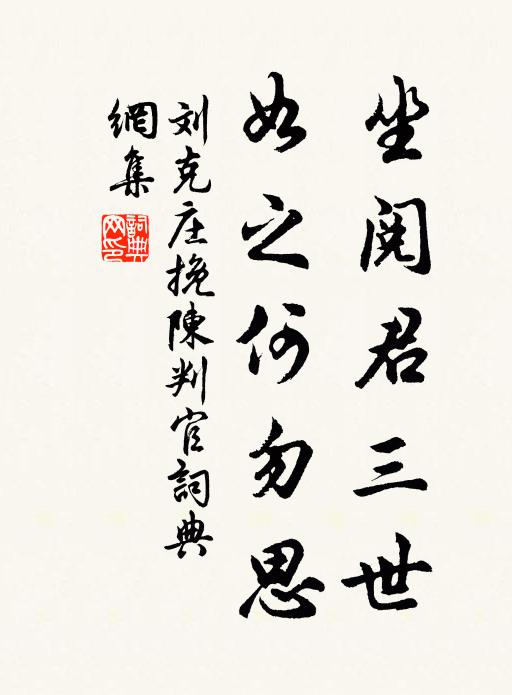 坐阅君三世
如之何勿思
刘克庄挽陳判官詞典
網集
詞典
网印